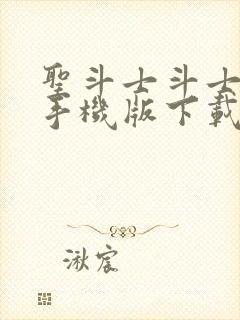 聖斗士斗士
手機版下載
湫宸